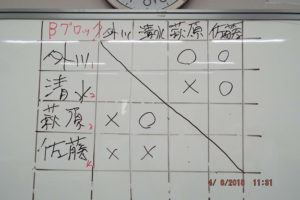 Bブロック 外川 清水 萩原 佐藤
外川1 ○ ○
清水2 × ○
萩原3 × ○
佐藤4 × ×
4/ 6/2016 11:31